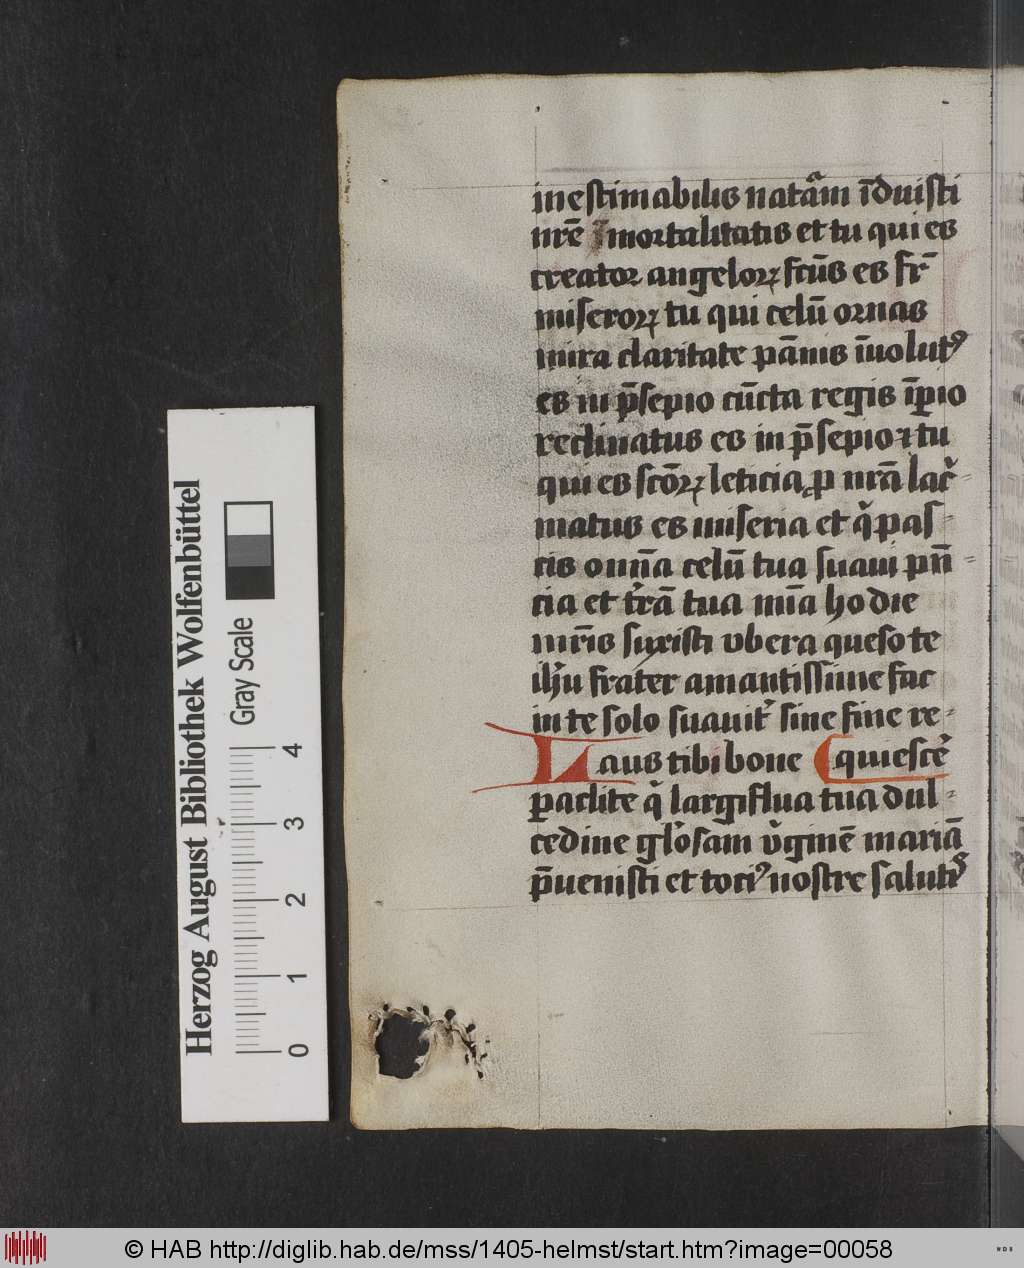 inestimabilis natãm ĩduisti
nrẽ mortalitatis et tu qui es
creator angeloꝝ fcũs es fr̃
miseroꝝ tu qui celũ ornas
mira claritate pãnis ĩuolutꝰ
es in p̃sepio cũcta regis ĩꝑio
reclinatus es in p̃sepio ⁊ tu
qui es scõꝝ leticia ꝓ nrã lac̃
matus es miseria et q̃ pas
cis omĩa celũ tua suaui pñ
cia et t̃rã tua mĩa hodie
mr̃is suxisti vbera queso te
ih̃u frater amantissime fac
in te solo suauit̃ sine fine re
quiescẽ
Laus tibi bone
ꝑaclite q̃ largiflua tua dul
cedine gl̃osam v̾ginẽ mariã
p̃uenisti et tociꝰ nostre saluti
Herzog August Bibliothek Wolfenbüttel
Gray Scale
0 1 2 3 4
© HAB http://diglib.hab.de/mss/1405-helmst/start.htm?image=00058